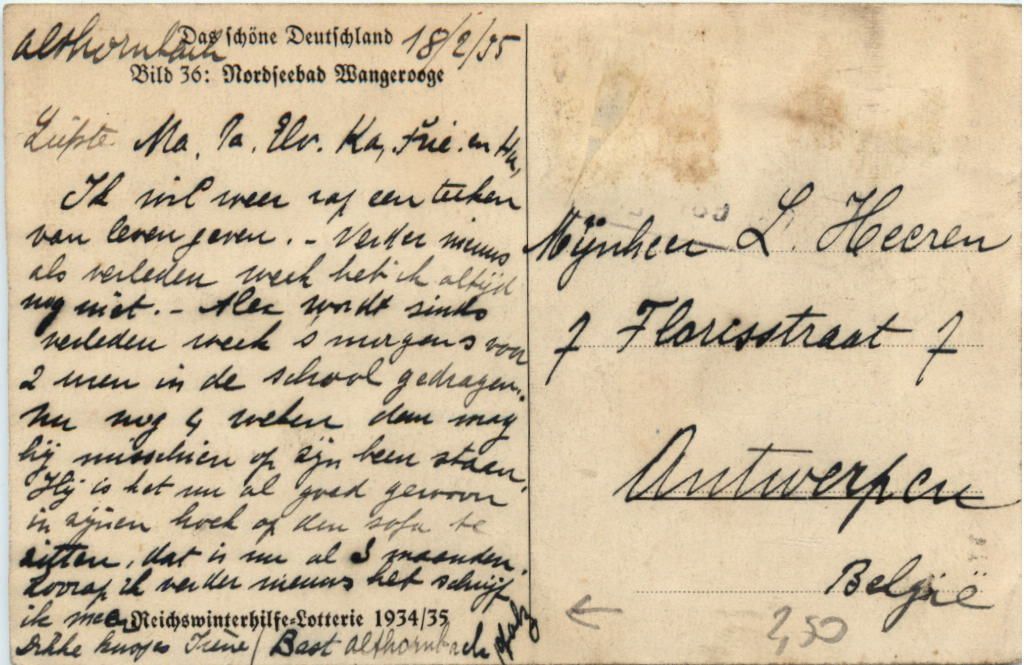 Althornbach Das schöne Deutschland 18/2/35
Bild 36: Nordseebad Wangerooge
Liefste Ma, Pa, Elv. Ka, Frie. en Ha,
Ik wil weer rap een teeken
van leven geven. - Verder nieuws
als verleden week heb ik altijd
nog niet. - Alex wordt sinds
verleden week s morgens voor
2 uren in de school gedragen.
Nu nog 4 weken dan mag
hij misschien op zijn been staan.
Hij is het nu al goed gewoon
in zijnen hoek op den sofa te
zitten, dat is nu al 3 maanden.
Zoorap ik verder nieuws heb schrijf
ik mee Reichswinterhilfe-Lotterie 1934/35
Dikke kusjes Irène / Bast Althornbach Pfalz
Mijnheer L. Heeren
7 Florisstraat 7
Antwerpen
België
2,50